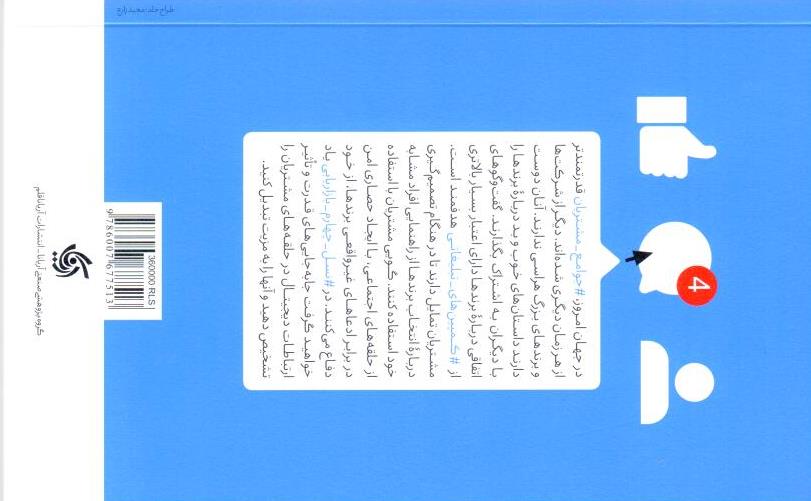 4
در جهان امروز، #جوامع_مشتریان قدرتمندتر
از هر زمان دیگری شده‌اند. دیگر از شرکت‌ها
و برندهای بزرگ هراسی ندارند. آنان دوست
دارند داستان‌های خوب و بد دربارهٔ برندها را
با دیگران به اشتراک بگذارند. گفت‌وگوهای
اتفاقی دربارهٔ برندها دارای اعتبار بسیار بالاتری
از #کمپین‌های_تبلیغاتی هدفمند است.
مشتریان تمایل دارند تا در هنگام تصمیم‌گیری
دربارهٔ انتخاب برندها از راهنمایی افراد مشابه
خود استفاده کنند. گویی مشتریان با استفاده
از حلقه‌های اجتماعی، با ایجاد حصاری امن
در برابر ادعاهای غیرواقعی برندها، از خود
دفاع می‌کنند. در #نسل_چهارم_بازاریابی یاد
خواهید گرفت جابه‌جایی‌های قدرت و تأثیر
ارتباطات دیجیتال در حلقه‌های مشتریان را
تشخیص دهید و آنها را به مزیت تبدیل کنید.
360000 RLS
9 786007 677513
آریاناقلم
گروه پژوهشی صنعتی آریانا ـ انتشارات آریاناقلم
طراح جلد: مجید زارع